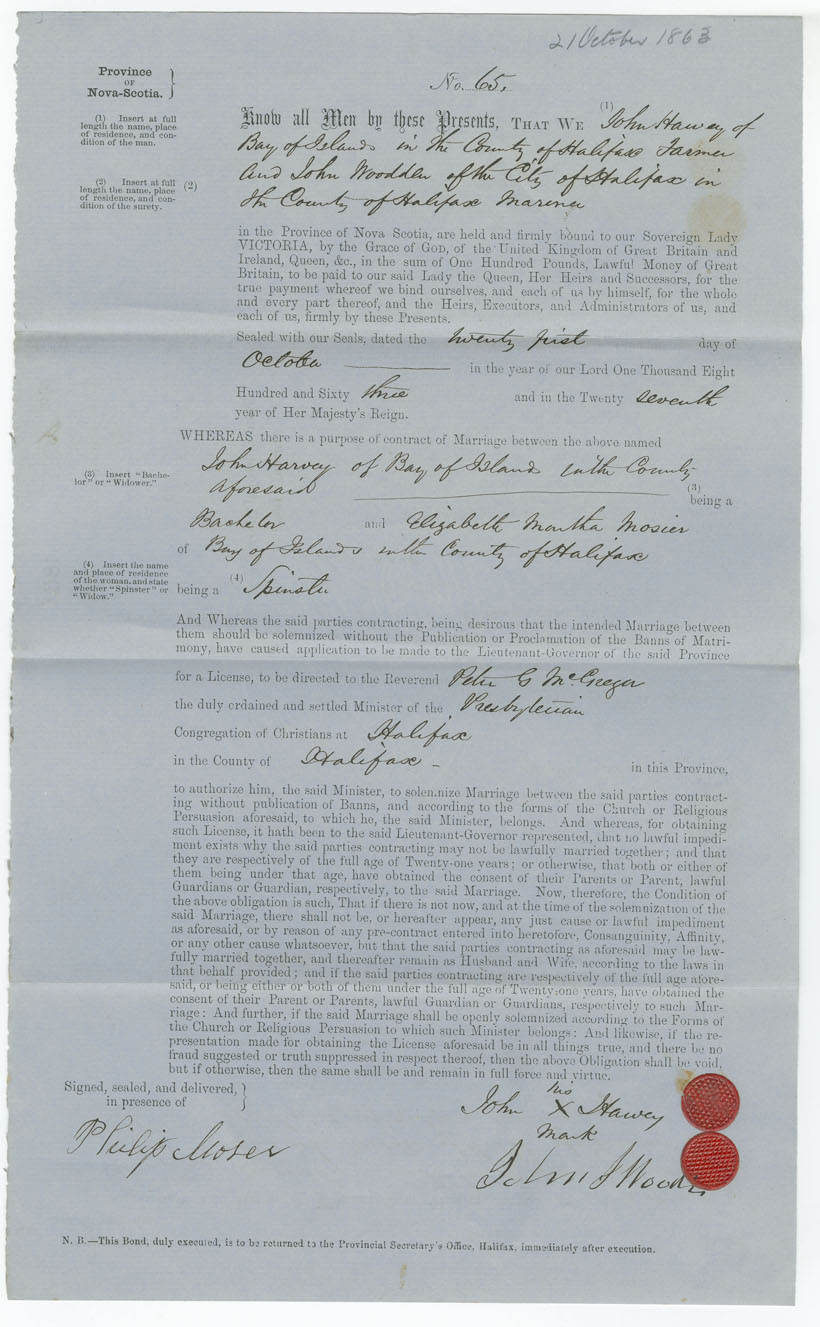 21 October 1863
Province
OF
Nova-Scotia.
No. 65.
(1) Insert at full
length the name, place
of residence, and con-
dition of the man.
Know all Men by these Presents, THAT WE (1) John Harvey of
Bay of Islands in the County of Halifax Farmer
(2) Insert at full
length the name, place
of residence, and con-
dition of the surety.
(2) and John Woodden of the City of Halifax in
the County of Halifax Mariner
in the Province of Nova Scotia, are held and firmly bound to our Sovereign Lady
VICTORIA, by the Grace of GOD, of the United Kingdom of Great Britain and
Ireland, Queen, &c., in the sum of One Hundred Pounds, Lawful Money of Great
Britain, to be paid to our said Lady the Queen, Her Heirs and Successors, for the
true payment whereof we bind ourselves, and each of us by himself, for the whole
and every part thereof, and the Heirs, Executors, and Administrators of us, and
each of us, firmly by these Presents.
Sealed with our Seals, dated the twenty first day of
October in the year of our Lord One Thousand Eight
Hundred and Sixty three and in the Twenty seventh
year of Her Majesty's Reign.
WHEREAS there is a purpose of contract of Marriage between the above named
John Harvey of Bay of Island in the County
(3) Insert "Bache-
lor" or "Widower."
aforesaid (3) being a
Bachelor and Elizabeth Martha Mosier
of Bay of Islands in the County of Halifax
(4) Insert the name
and place of residence
of the woman, and state
whether "Spinster" or
"Widow."
being a (4) Spinster
And Whereas the said parties contracting, being desirous that the intended Marriage between
them should be solemnized without the Publication or Proclamation of the Banns of Matri-
mony, have caused application to be made to the Lieutenant-Governor of the said Province
for a License, to be directed to the Reverend Peter G McGregor
the duly ordained and settled Minister of the Presbyterian
Congregation of Christians at Halifax
in the County of Halifax - in this Province,
to authorize him, the said Minister, to solemnize Marriage between the said parties contract-
ing without publication of Banns, and according to the forms of the Church or Religious
Persuasion aforesaid, to which he, the said Minister, belongs. And whereas, for obtaining
such License, it hath been to the said Lieutenant-Governor represented, that no lawful impedi-
ment exists why the said parties contracting may not be lawfully married together; and that
they are respectively of the full age of Twenty-one years; or otherwise, that both or either of
them being under that age, have obtained the consent of their Parents or Parent, lawful
Guardians or Guardian, respectively, to the said Marriage. Now, therefore, the Condition of
the above obligation is such, That if there is not now, and at the time of the solemnization of the
said Marriage, there shall not be, or hereafter appear, any just cause or lawful impediment
as aforesaid, or by reason of any pre-contract entered into heretofore, Consanguinity, Affinity,
or any other cause whatsoever, but that the said parties contracting as aforesaid may be law-
fully married together, and thereafter remain as Husband and Wife, according to the laws in
that behalf provided; and if the said parties contracting are respectively of the full age afore-
said, or being either or both of them under the full age of Twenty-one years, have obtained the
consent of their Parent or Parents, lawful Guardian or Guardians, respectively to such Mar-
riage: And further, if the said Marriage shall be openly solemnized according to the Forms of
the Church or Religious Persuasion to which such Minister belongs: And likewise, if the re-
presentation made for obtaining the License aforesaid be in all things true, and there be no
fraud suggested or truth suppressed in respect thereof, then the above Obligation shall be void,
but if otherwise, then the same shall be and remain in full force and virtue.
Signed, sealed, and delivered,
in presence of
his
John X Harvey
mark
Philip Moser
John J Woodin
N. B.—This Bond, duly executed, is to be returned to the Provincial Secretary's Office, Halifax, immediately after execution.